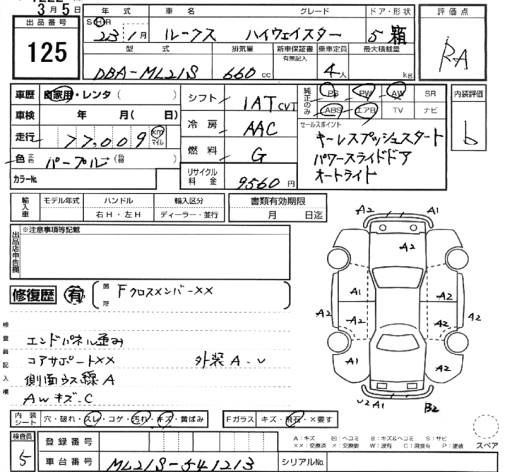 3月5日
出品番号
125
年式 車名 グレード ドア・形状
S H R
23 1月 ルークス ハイウェイスター 5 箱
型式 排気量 新車保証書 乗車定員 最大積載量
有無記入
DBA-ML21S 660cc 4人 kg
評価点
RA
車歴 自家用・レンタ( )
車検 年 月( 日)
走行 77,009 km マイル
色 パープル
カラーNo.
シフト IAT CVT
冷房 AAC
燃料 G
リサイクル料金 9560円
純正のみ
PS PW AW SR
ABS エアB TV ナビ
セールスポイント
キーレスプッシュスタート
パワースライドドア
オートライト
内装評価
b
輸入車
モデル年式 ハンドル 輸入区分
年 右H・左H ディーラー・並行
書類有効期限
月 日迄
出品店申告欄
※注意事項等記載
修復歴 有
箇所
Fクロスメンバーxx
検査員記入欄
エンドパネル歪み
コアサポートxx 外装A・U
側面ウス線A
AWキズ・C
A2 A1
A2
A2 A2 A2 A2
A2 A2 A2
A2 A1
A2
A1 B2
内装シート 穴・破れ・スレ・コゲ・汚れ・キズ・黄ばみ
Fガラス キズ・飛石・×要す
検査員
5
登録番号
車台番号 ML21S-541213
シリアルNo.
A:キズ U:ヘコミ B:キズ&ヘコミ S:サビ
××:交換済 ×:交換要 W:波有 C:腐食有 P:塗装
スペア